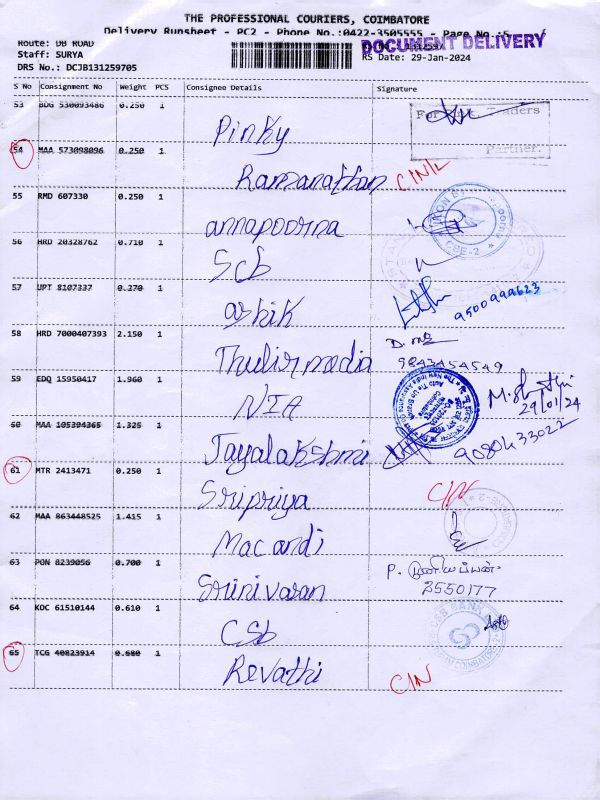 THE PROFESSIONAL COURIERS, COIMBATORE
Delivery Runsheet - PC2 - Phone No.:0422-3505555 - Page No.:5
DOCUMENT DELIVERY
Route: DB ROAD
Staff: SURYA
RS Date: 29-Jan-2024
DRS No.: DCJB131259705
S No Consignment No Weight PCS Consignee Details Signature
53 BDG 530093486 0.250 1 Pinky
Traders
Partner.
54 MAA 573098096 0.250 1 Ramanathan C/N/L
55 RMD 607330 0.250 1 annapoorna
56 HRD 20328762 0.710 1 Scb
57 UPT 8107337 0.270 1 ashik
58 HRD 7000407393 2.150 1 Thulir media 9843454549
59 EDQ 15950417 1.960 1 NIA
29/01/24
60 MAA 105394365 1.325 1 Jayalakshmi 9080433022
61 MTR 2413471 0.250 1 Sripriya C/N
62 MAA 863448525 1.415 1 Mac andi
63 PON 8239056 0.700 1 Srinivasan P. முனியப்பன்
2550177
64 KOC 61510144 0.610 1 CSb
CSB BANK
65 TCG 40823914 0.680 1 Revathi C/N